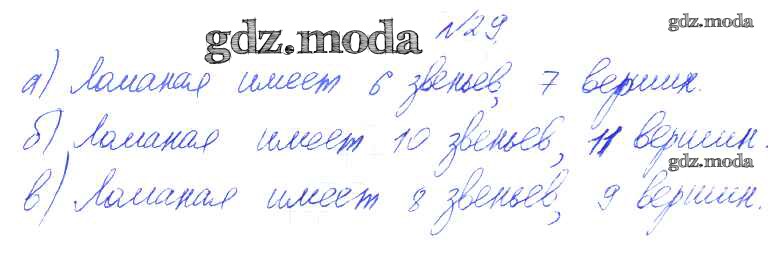 №29.
gdz.moda
gdz.moda
а) Ломаная имеет 6 звеньев, 7 вершин.
б) Ломаная имеет 10 звеньев, 11 вершин.
gdz.moda
в) Ломаная имеет 8 звеньев, 9 вершин.